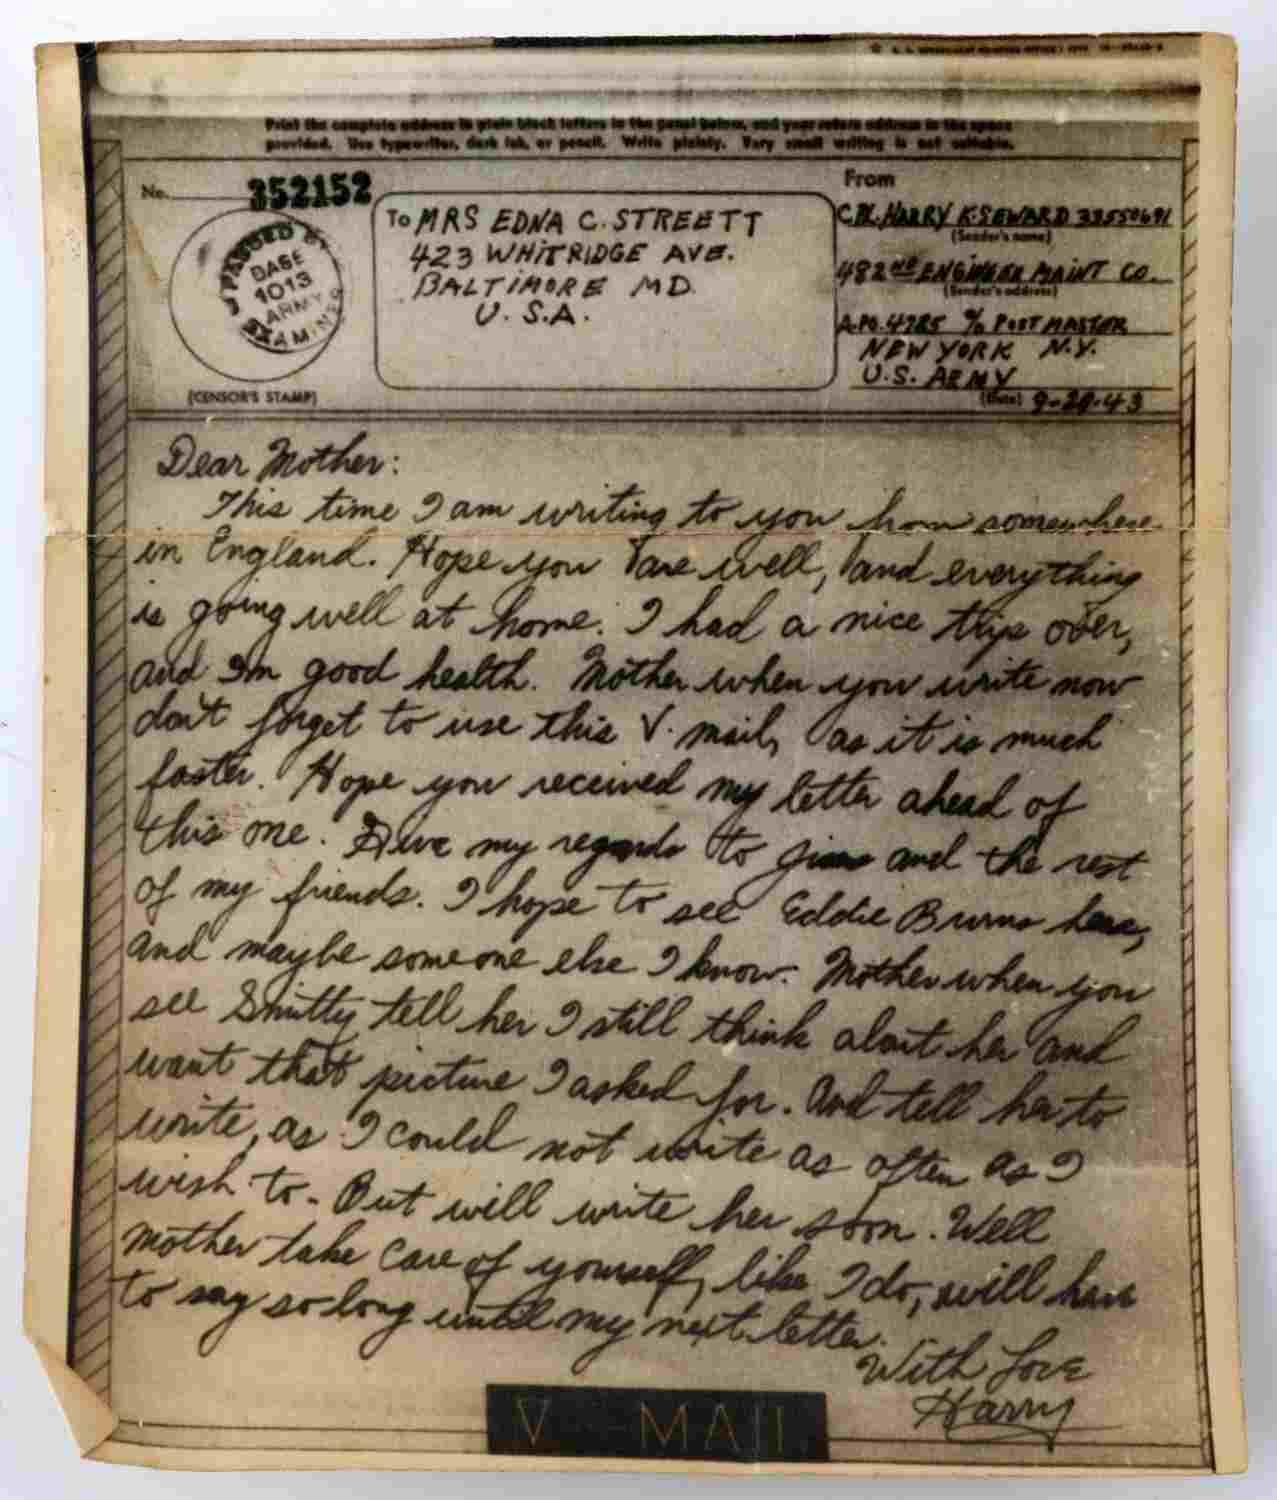 Print the complete address in plain block letters in the panel below, and your return address in the space
provided. Use typewriter, dark ink, or pencil. Write plainly. Very small writing is not suitable.
No. 352152
PASSED BY
BASE
1013
ARMY
EXAMINER
(CENSOR'S STAMP)
To MRS EDNA C. STREETT
423 WHITRIDGE AVE.
BALTIMORE MD.
U. S. A.
From
CPL. HARRY K. SEWARD 33550691
(Sender's name)
482ND ENGINEER MAINT CO.
(Sender's address)
A.P.O. 4785 % POSTMASTER
NEW YORK N.Y.
U.S. ARMY
(Date) 9-29-43
Dear Mother:
This time I am writing to you from somewhere
in England. Hope you are well, and everything
is going well at home. I had a nice trip over,
and Im good health. Mother when you write now
don't forget to use this V. mail, as it is much
faster. Hope you received my letter ahead of
this one. Give my regards to and the rest
of my friends. I hope to see Eddie Burns here,
and maybe someone else I know. Mother when you
see Smitty tell her I still think about her and
want that picture I asked for. And tell her to
write, as I could not write as often as I
wish to. But will write her soon. Well
mother take care of yourself, like I do, will have
to say so long until my next letter.
With Love
Harry
V - MAIL